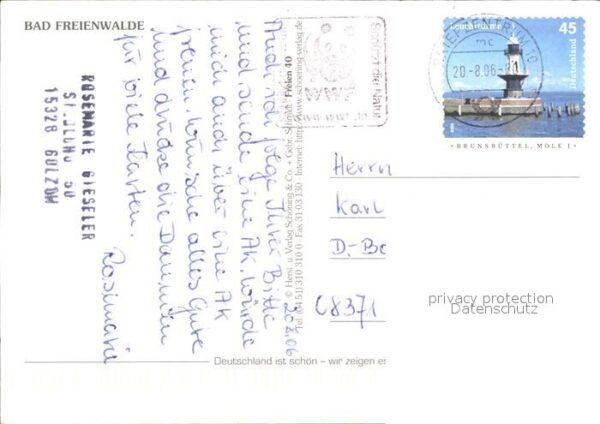 BAD FREIENWALDE
20.8.06
Auch ich folge Ihrer Bitte
und sende eine AK. Würde
mich auch über eine AK
freuen. Wünsche alles Gute
und drücke die Daumen
für viele Karten.
Rosimarie
ROSEMARIE GIESELER
SIEDLUNG 50
15328 GOLZOW
© Herst. u. Verlag Schöning & Co. + Gebr. Schmidt Freien 40
Tel. (04 51) 310 310 0 · Fax 31 03 130 · Internet: http://www.schoening-verlag.de
Deutschland ist schön – wir zeigen es
WWF
www.wwf.de
BRIEFZENTRUM
mc
20-8.06
Leuchttürme
45
Deutschland
BRUNSBÜTTEL, MOLE 1
Herrn
Karl
D.-Be
08371
privacy protection
Datenschutz